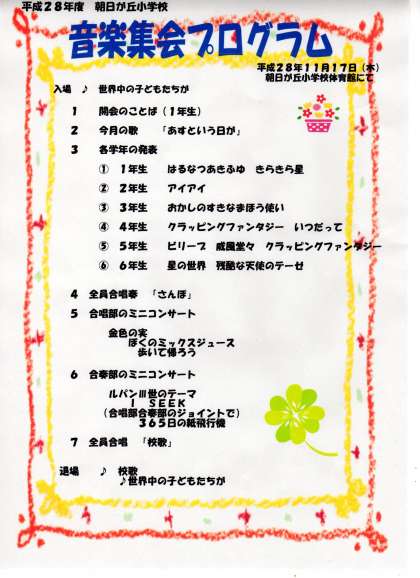 平成28年度　朝日が丘小学校
音楽集会プログラム
平成28年11月17日（木）
朝日が丘小学校体育館にて
入場　♪　世界中の子どもたちが
1　開会のことば（1年生）
2　今月の歌　「あすという日が」
3　各学年の発表
①　1年生　はるなつあきふゆ　きらきら星
②　2年生　アイアイ
③　3年生　おかしのすきなまほう使い
④　4年生　クラッピングファンタジー　いつだって
⑤　5年生　ビリーブ　威風堂々　クラッピングファンタジー
⑥　6年生　星の世界　残酷な天使のテーゼ
4　全員合唱奏　「さんぽ」
5　合唱部のミニコンサート
金色の実
ぼくのミックスジュース
歩いて帰ろう
6　合奏部のミニコンサート
ルパンⅢ世のテーマ
I　SEEK
（合唱部合奏部のジョイントで）
365日の紙飛行機
7　全員合唱　「校歌」
退場　♪　校歌
♪世界中の子どもたちが